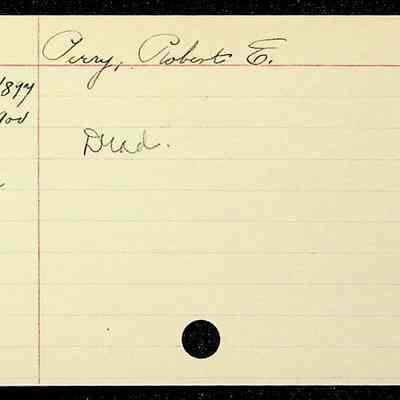 Perry, Robert E.
1897
Dead.